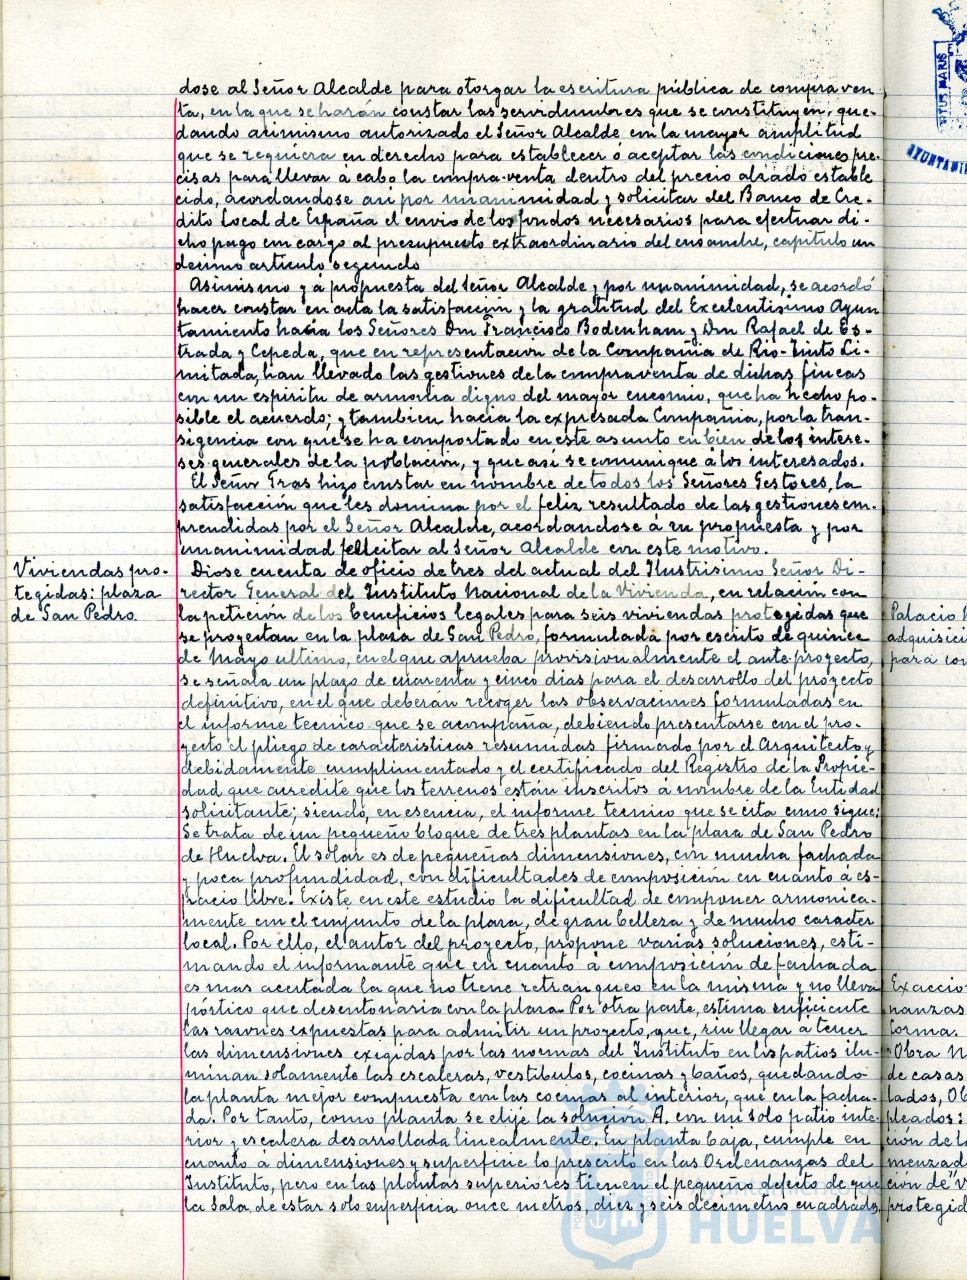 dose al Señor Alcalde para otorgar la escritura pública de compra ven-
ta, en la que se harán constar las servidumbres que se constituyen, que-
dando asimismo autorizado el Señor Alcalde con la mayor amplitud
que se requiera en derecho para establecer ó aceptar las condiciones pre-
cisas para llevar á cabo la compra-venta dentro del precio alzado estable
cido, acordandose asi por unanimidad y solicitar del Banco de Cre-
dito Local de España el envio de los fondos necesarios para efectuar di-
cho pago con cargo al presupuesto extraordinario del ensanche, capítulo un
decimo articulo segundo
Asimismo y á propuesta del Señor Alcalde y por unanimidad, se acordó
hacer constar en acta la satisfacción y la gratitud del Excelentisimo Ayun
tamiento hacia los Señores Don Francisco Bodenham y Don Rafael de Es-
trada y Cepeda, que en representación de la Compañia de Rio-Tinto Li-
mitada, han llevado las gestiones de la compraventa de dichas fincas
con un espiritu de armonia digno del mayor encomio, que ha hecho po-
sible el acuerdo; y tambien hacia la expresada Compañia, por la tran-
sigencia con que se ha comportado en este asunto en bien de los intere-
ses generales de la población, y que así se comunique á los interesados.
El Señor Tras hizo constar en nombre de todos los Señores Gestores, la
satisfacción que les domina por el feliz resultado de las gestiones em-
prendidas por el Señor Alcalde, acordandose á su propuesta y por
unanimidad felicitar al Señor Alcalde con este motivo.
Viviendas pro-
tegidas: plaza
de San Pedro.
Diose cuenta de oficio de tres del actual del Ilustrisimo Señor Di-
rector General del Instituto Nacional de la Vivienda, en relación con
la petición de los beneficios legales para seis viviendas protegidas que
se proyectan en la plaza de San Pedro, formulada por escrito de quince
de Mayo ultimo, en el que aprueba provisionalmente el ante-proyecto,
se señala un plazo de cuarenta y cinco dias para el desarrollo del proyecto
definitivo, en el que deberán recoger las observaciones formuladas en
el informe tecnico que se acompaña, debiendo presentarse con el pro-
yecto el pliego de caracteristicas resumidas firmado por el Arquitecto y
debidamente cumplimentado y el certificado del Registro de la Propie-
dad que acredite que los terrenos están inscritos á nombre de la Entidad
solicitante; siendo, en esencia, el informe tecnico que se cita como sigue:
Se trata de un pequeño bloque de tres plantas en la plaza de San Pedro
de Huelva. El solar es de pequeñas dimensiones, con mucha fachada
y poca profundidad, con dificultades de composición en cuanto á es-
pacio libre. Existe en este estudio la dificultad de componer armonica-
mente con el conjunto de la plaza, de gran belleza y de mucho caracter
local. Por ello, el autor del proyecto, propone varias soluciones, esti-
mando el informante que en cuanto á composición de fachada
es mas acertada la que no tiene retranqueo en la misma y no lleva
pórtico que desentonaria con la plaza. Por otra parte, estima suficiente
las razones expuestas para admitir un proyecto, que, sin llegar á tener
las dimensiones exigidas por las normas del Instituto en los patios ilu-
minan solamente las escaleras, vestibulos, cocinas y baños, quedando
la planta mejor compuesta con las cocinas al interior, que en la facha-
da. Por tanto, como planta se elije la solución A. con un solo patio inte-
rior y escalera desarrollada linealmente. En planta baja, cumple en
cuanto á dimensiones y superficie lo prescrito en las Ordenanzas del
Instituto, pero en las plantas superiores tienen el pequeño defecto de que
la sala de estar solo superficia once metros, diez y seis decimetros cuadrados,
Palacio
adquisici
para con
Exaccio
nanzas
forma.
Obra N
de casas
lados, Ob
pleados:
ción de l
menzad
ción de v
protegid
AYUNTAMI
Ayuntamiento de
HUELVA